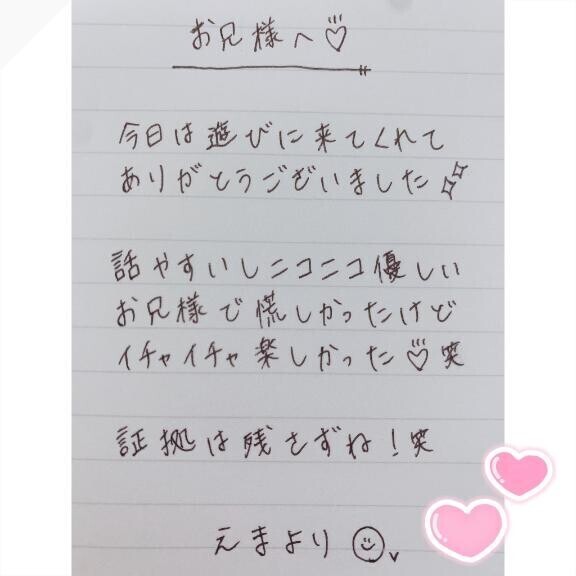 お兄様へ♡
今日は遊びに来てくれて
ありがとうございました
話やすいしニコニコ優しい
お兄様で慌しかったけど
イチャイチャ楽しかった♡笑
証拠は残さずね!笑
えまより